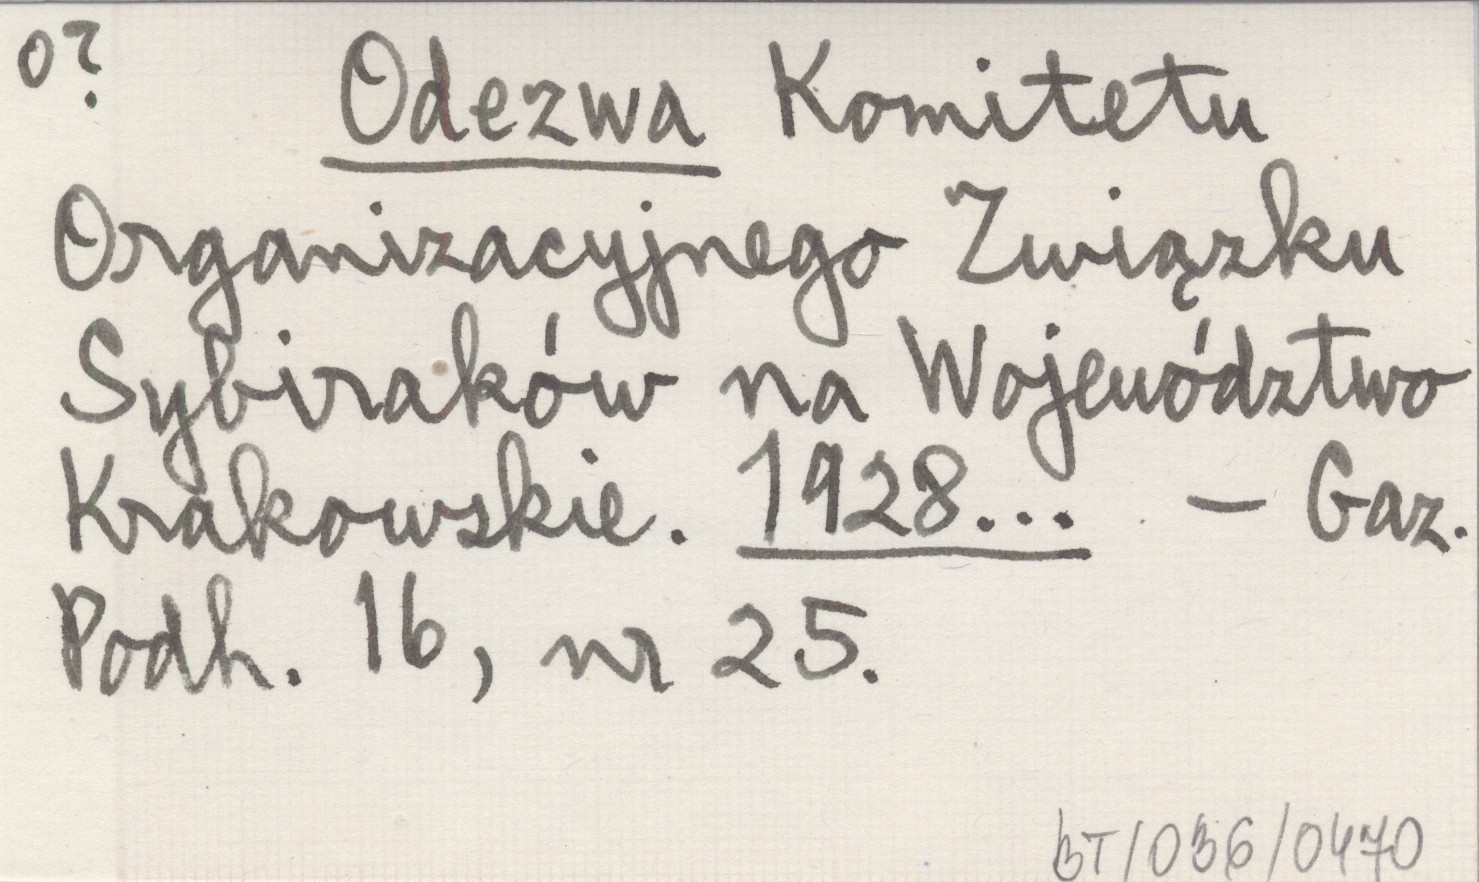 o?
Odezwa Komitetu
Organizacyjnego Związku
Sybiraków na Województwo
Krakowskie. 1928... – Gaz.
Podh. 16, nr 25.
BT/036/0470